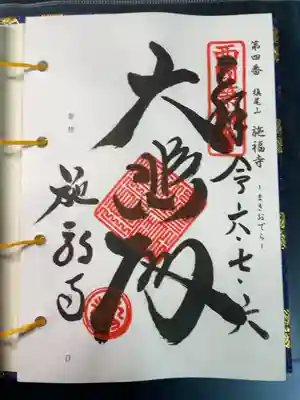 第四番 槇尾山 施福寺 ーまきおでらー
奉拝
令六・七・六
大悲殿
施福寺
日